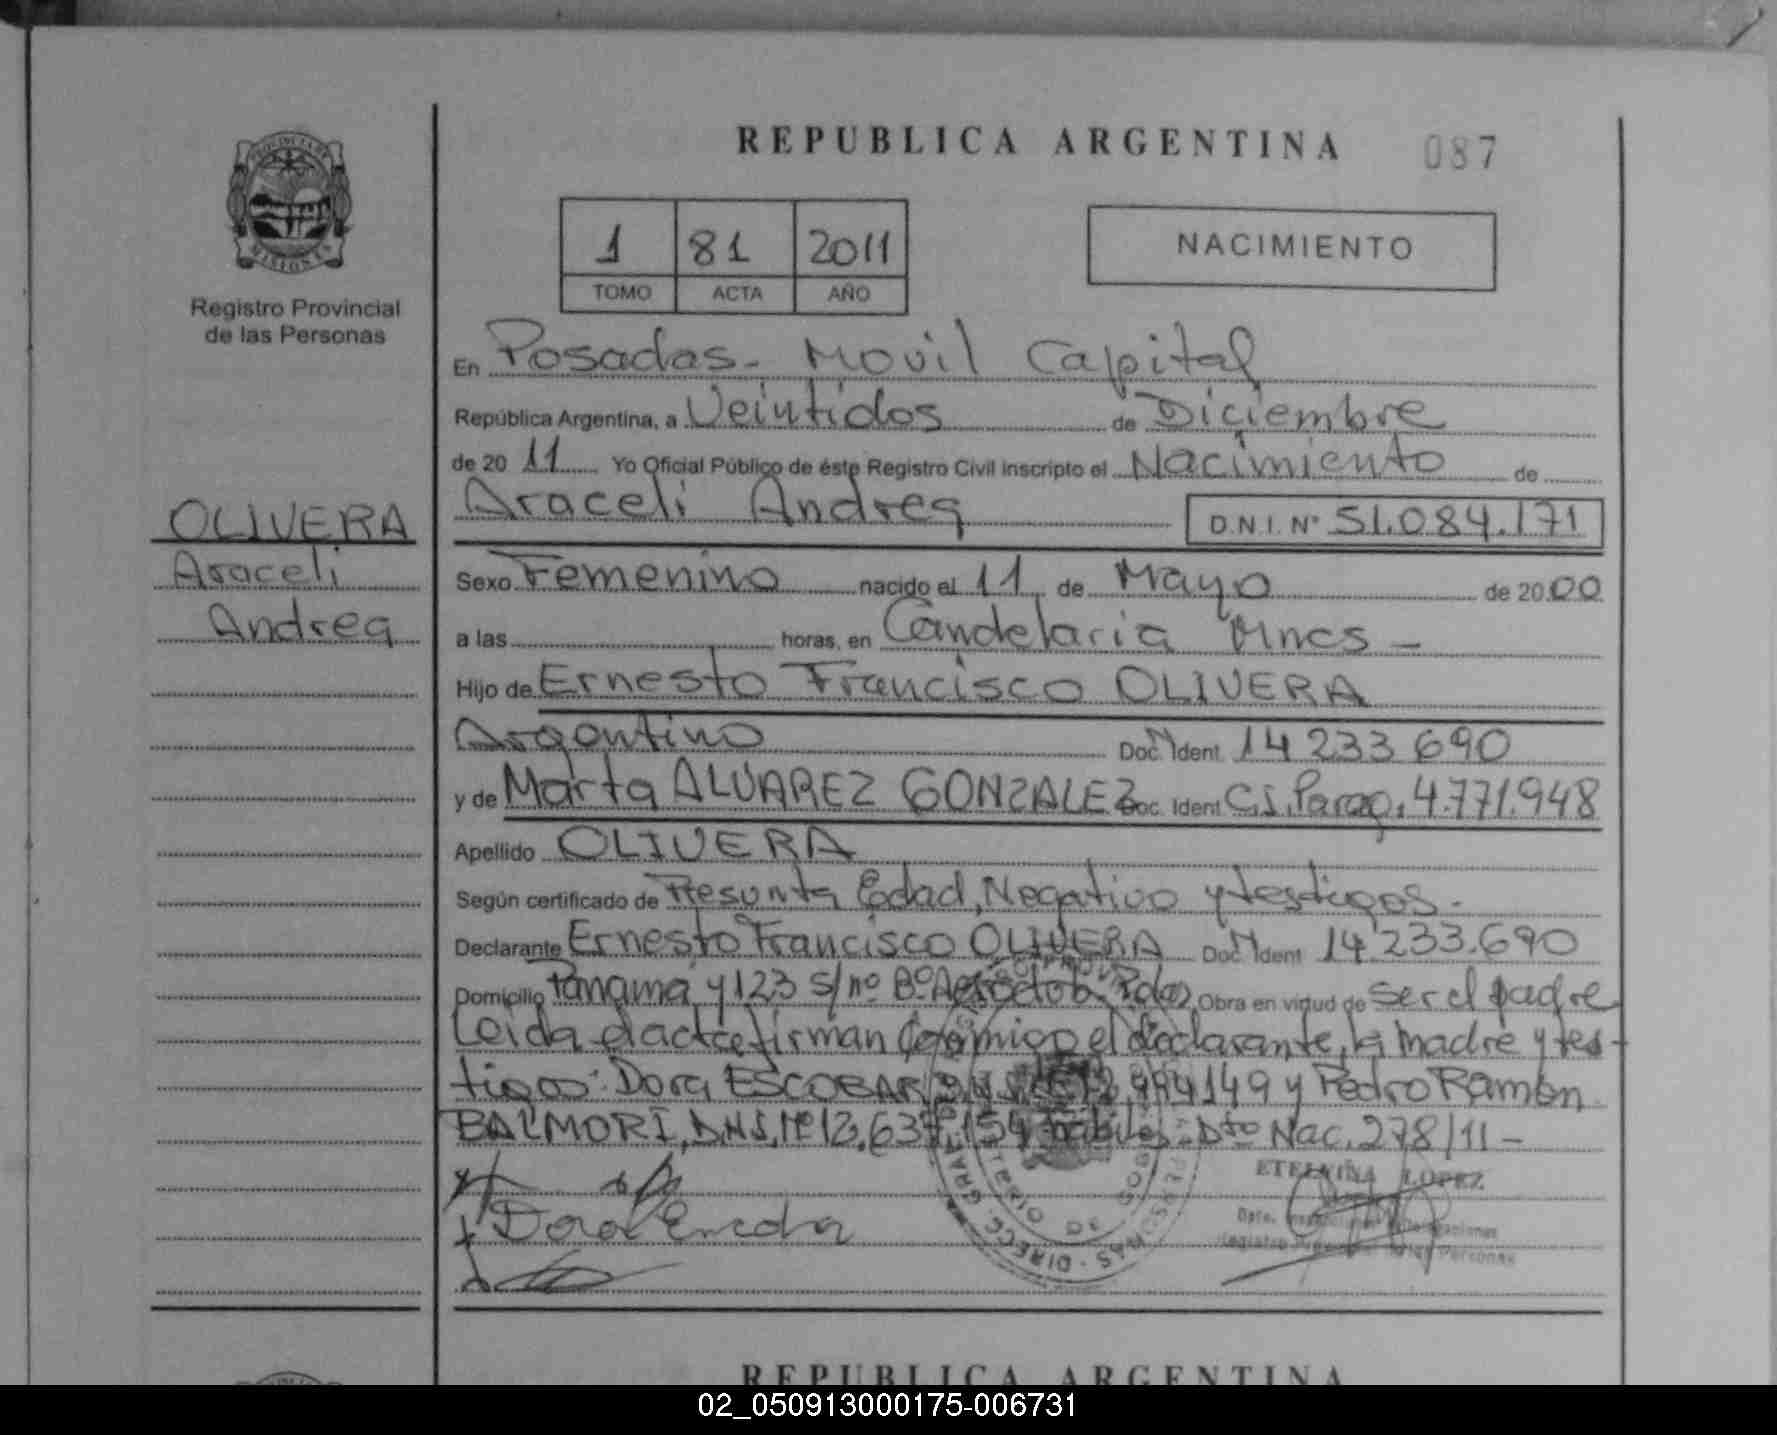 REPUBLICA ARGENTINA 087
PROVINCIA DE
MISIONES
Registro Provincial
de las Personas
1 81 2011
TOMO ACTA AÑO
NACIMIENTO
En Posadas - Movil Capital
República Argentina, a Veintidos de Diciembre
de 20 11 Yo Oficial Público de éste Registro Civil inscripto el Nacimiento de
Araceli Andrea D.N.I. N° 51.084.171
OLIVERA
Araceli
Andrea
Sexo Femenino nacido el 11 de Mayo de 2000
a las horas, en Candelaria Mnes -
Hijo de Ernesto Francisco OLIVERA
Argentino Doc. Ident. 14 233 690
y de Marta ALVAREZ GONZALEZ Doc. Ident C.I. Parag. 4.771.948
Apellido OLIVERA
Según certificado de Presunta Edad, Negativo y testigos.
Declarante Ernesto Francisco OLIVERA Doc. Ident 14.233.690
Domicilio Panamá y 123 s/nº Bº Pdas Obra en virtud de ser el padre
Leida el acta firman conmigo el declarante, la madre y tes-
tigos: Dora ESCOBAR 149 y Pedro Ramón
BALMORI, D.N.I. Nº 12.637.154 habiles - Dto Nac. 278/11 -
ETELVINA LOPEZ
Dora
Registro de las Personas
REPUBLICA ARGENTINA
02_050913000175-006731